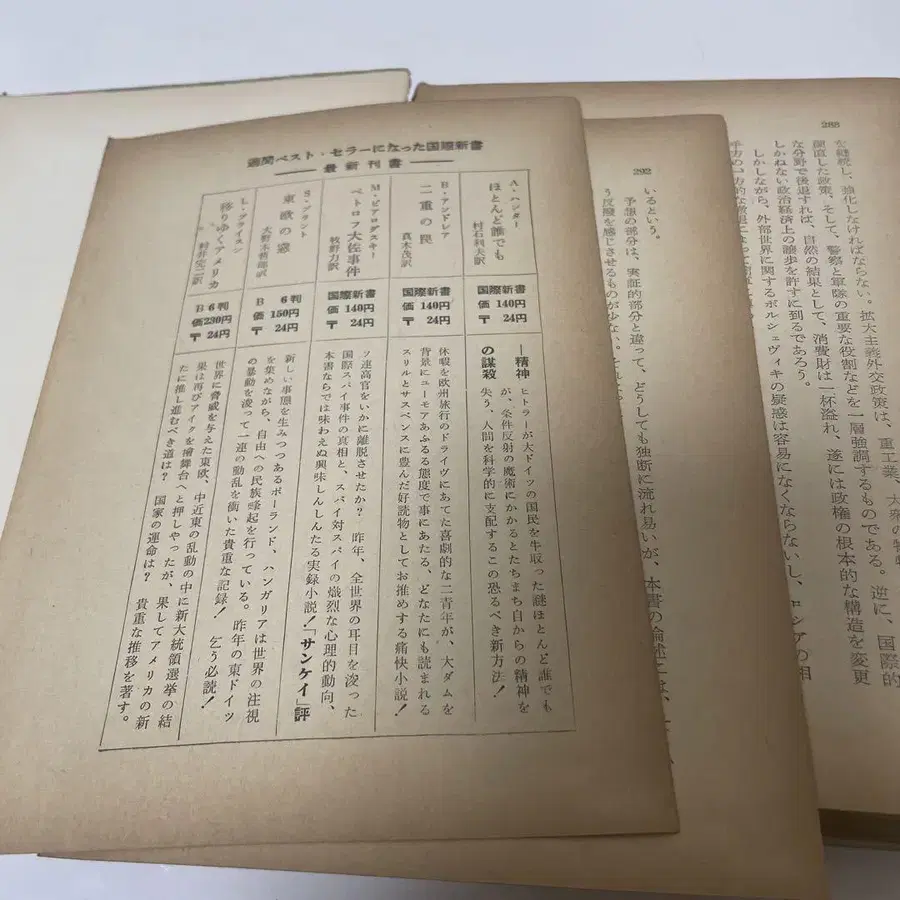 週間ベスト・セラーになった国際新書
最新刊書
A・ハンター
ほとんど誰でも
村石利夫訳
国際新書
価 140円
〒 24円
―精神
の謀殺
ヒトラーが大ドイツの国民を牛耳った謎ほとんど誰でも
が、条件反射の魔術にかかるとたちまち自からの精神を
失う、人間を科学的に支配するこの恐るべき新方法!
B・アンドレア
二重の罠
真木茂訳
国際新書
価 140円
〒 24円
休暇を欧州旅行のドライヴにあてた喜劇的な二青年が、大ダムを
背景にユーモアあふるる態度で事にあたる、どなたにも読まれる
スリルとサスペンスに豊んだ好読物としてお推めする痛快小説!
M・ビアロダスキー
ペトロフ大佐事件
牧野力訳
国際新書
価 140円
〒 24円
ソ連高官をいかに離脱させたか? 昨年、全世界の耳目を浚った
国際スパイ事件の真相と、スパイ対スパイの熾烈な心理的動向、
本書ならでは味わえぬ興味しんしんたる実録小説!「サンケイ」評
S・ブラント
東欧の窓
B 6判
価 150円
〒 24円
新しい事態を生みつつあるポーランド、ハンガリアは世界の注視
を集めながら、自由への民族蜂起を行っている。昨年の東ドイツ
の暴動を浚って一連の動乱を衝いた貴重な記録! 乞う必読!
L・グライスン
移りゆくアメリカ
B 6判
価 230円
〒 24円
世界に脅威を与えた東欧、中近東の乱動の中に新大統領選挙の結
果は再びアイクを檜舞台へと押しやったが、果してアメリカの新
たに推し進むべき道は? 国家の運命は? 貴重な推移を著す。
292
いるという。
予想の部分は、実証的部分と違って、どうしても独断に流れ易いが、本書の論述には、
う反撥を感じさせるものが少ない。
288
な継続し、強化しなければならない。拡大主義外交政策は、重工業、
顔直した政策、そして、警察と軍隊の重要な役割などを一層強調するものである。逆に、国際的
な分野で後退すれば、自然の結果として、消費財は一杯溢れ、遂には政権の根本的な構造を変更
しかねない政治経済上の譲歩を許すに到るであろう。
しかしながら、外部世界に関するボルシェヴィキの疑惑は容易になくならないし、